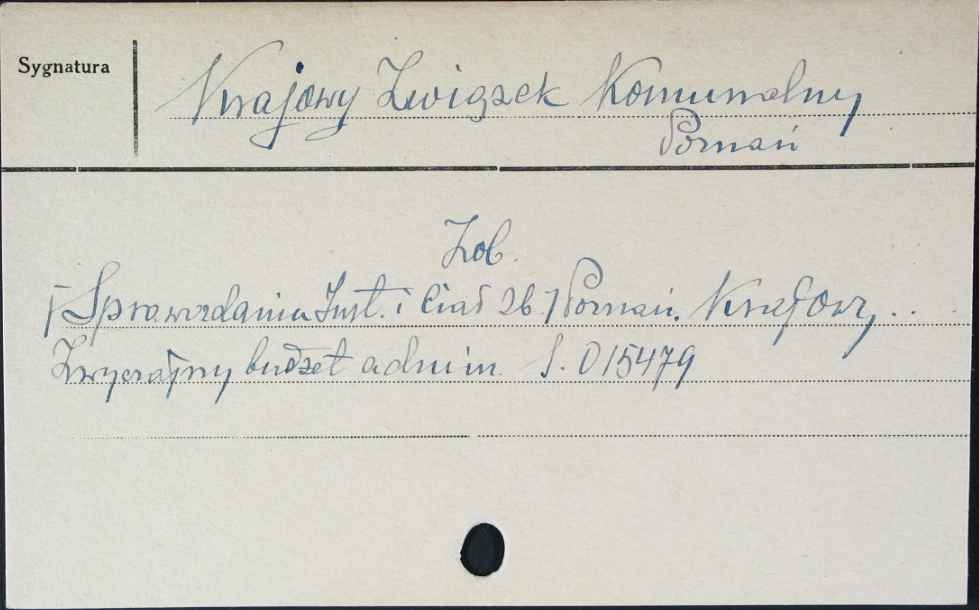 Sygnatura
Krajowy Związek Komunalny
Poznań
Zob.
[Sprawozdania Inst. i Ciał Zb.] Poznań. Krajowy..
Zwyczajny budżet admin. S. 015479